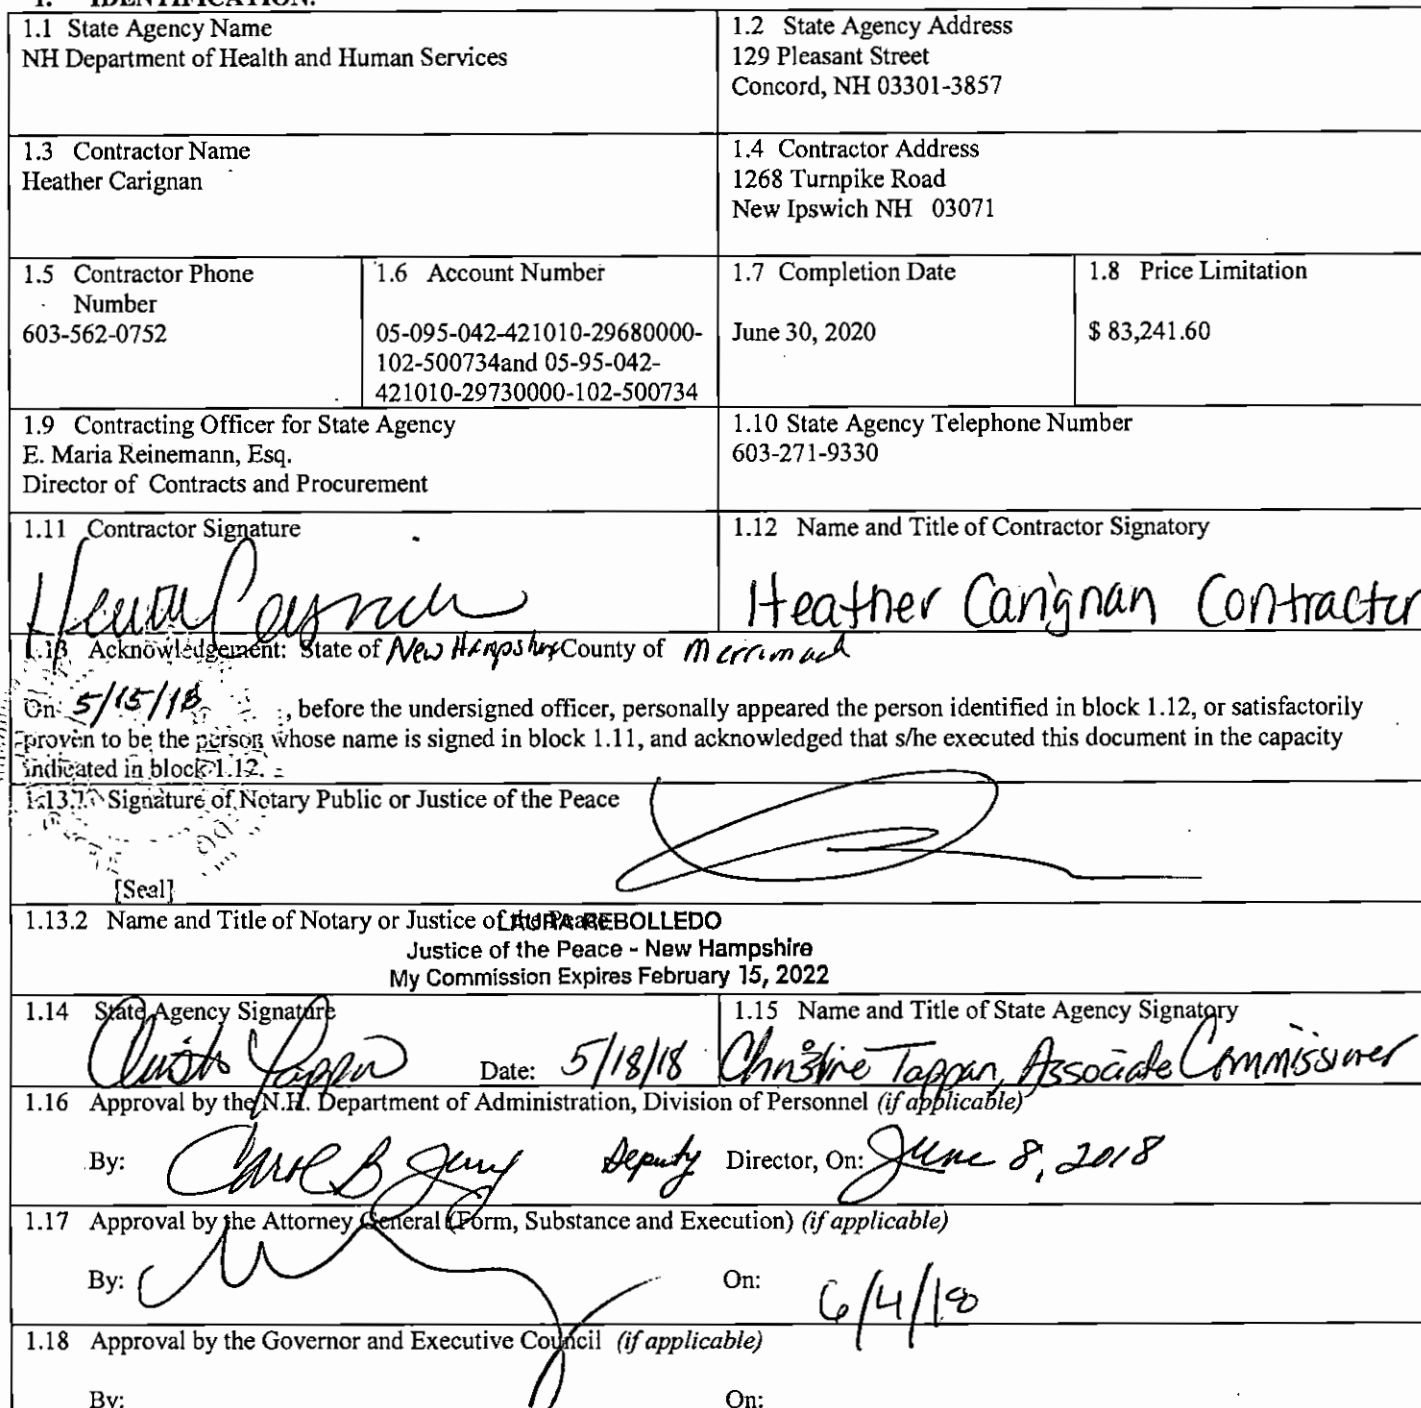 1. IDENTIFICATION.
1.1 State Agency Name
NH Department of Health and Human Services
1.2 State Agency Address
129 Pleasant Street
Concord, NH 03301-3857
1.3 Contractor Name
Heather Carignan
1.4 Contractor Address
1268 Turnpike Road
New Ipswich NH 03071
1.5 Contractor Phone
Number
603-562-0752
1.6 Account Number
05-095-042-421010-29680000-
102-500734and 05-95-042-
421010-29730000-102-500734
1.7 Completion Date
June 30, 2020
1.8 Price Limitation
$ 83,241.60
1.9 Contracting Officer for State Agency
E. Maria Reinemann, Esq.
Director of Contracts and Procurement
1.10 State Agency Telephone Number
603-271-9330
1.11 Contractor Signature
1.12 Name and Title of Contractor Signatory
Heather Carignan Contractor
1.13 Acknowledgement: State of New Hampshire County of Merrimack
On 5/15/18, before the undersigned officer, personally appeared the person identified in block 1.12, or satisfactorily
proven to be the person whose name is signed in block 1.11, and acknowledged that s/he executed this document in the capacity
indicated in block 1.12.
1.13.1 Signature of Notary Public or Justice of the Peace
[Seal]
1.13.2 Name and Title of Notary or Justice of the Peace
LAURA REBOLLEDO
Justice of the Peace - New Hampshire
My Commission Expires February 15, 2022
1.14 State Agency Signature
Date: 5/18/18
1.15 Name and Title of State Agency Signatory
Christine Tappan, Associate Commissioner
1.16 Approval by the N.H. Department of Administration, Division of Personnel (if applicable)
By: Deputy Director, On: June 8, 2018
1.17 Approval by the Attorney General (Form, Substance and Execution) (if applicable)
By: On: 6/4/18
1.18 Approval by the Governor and Executive Council (if applicable)
By: On: